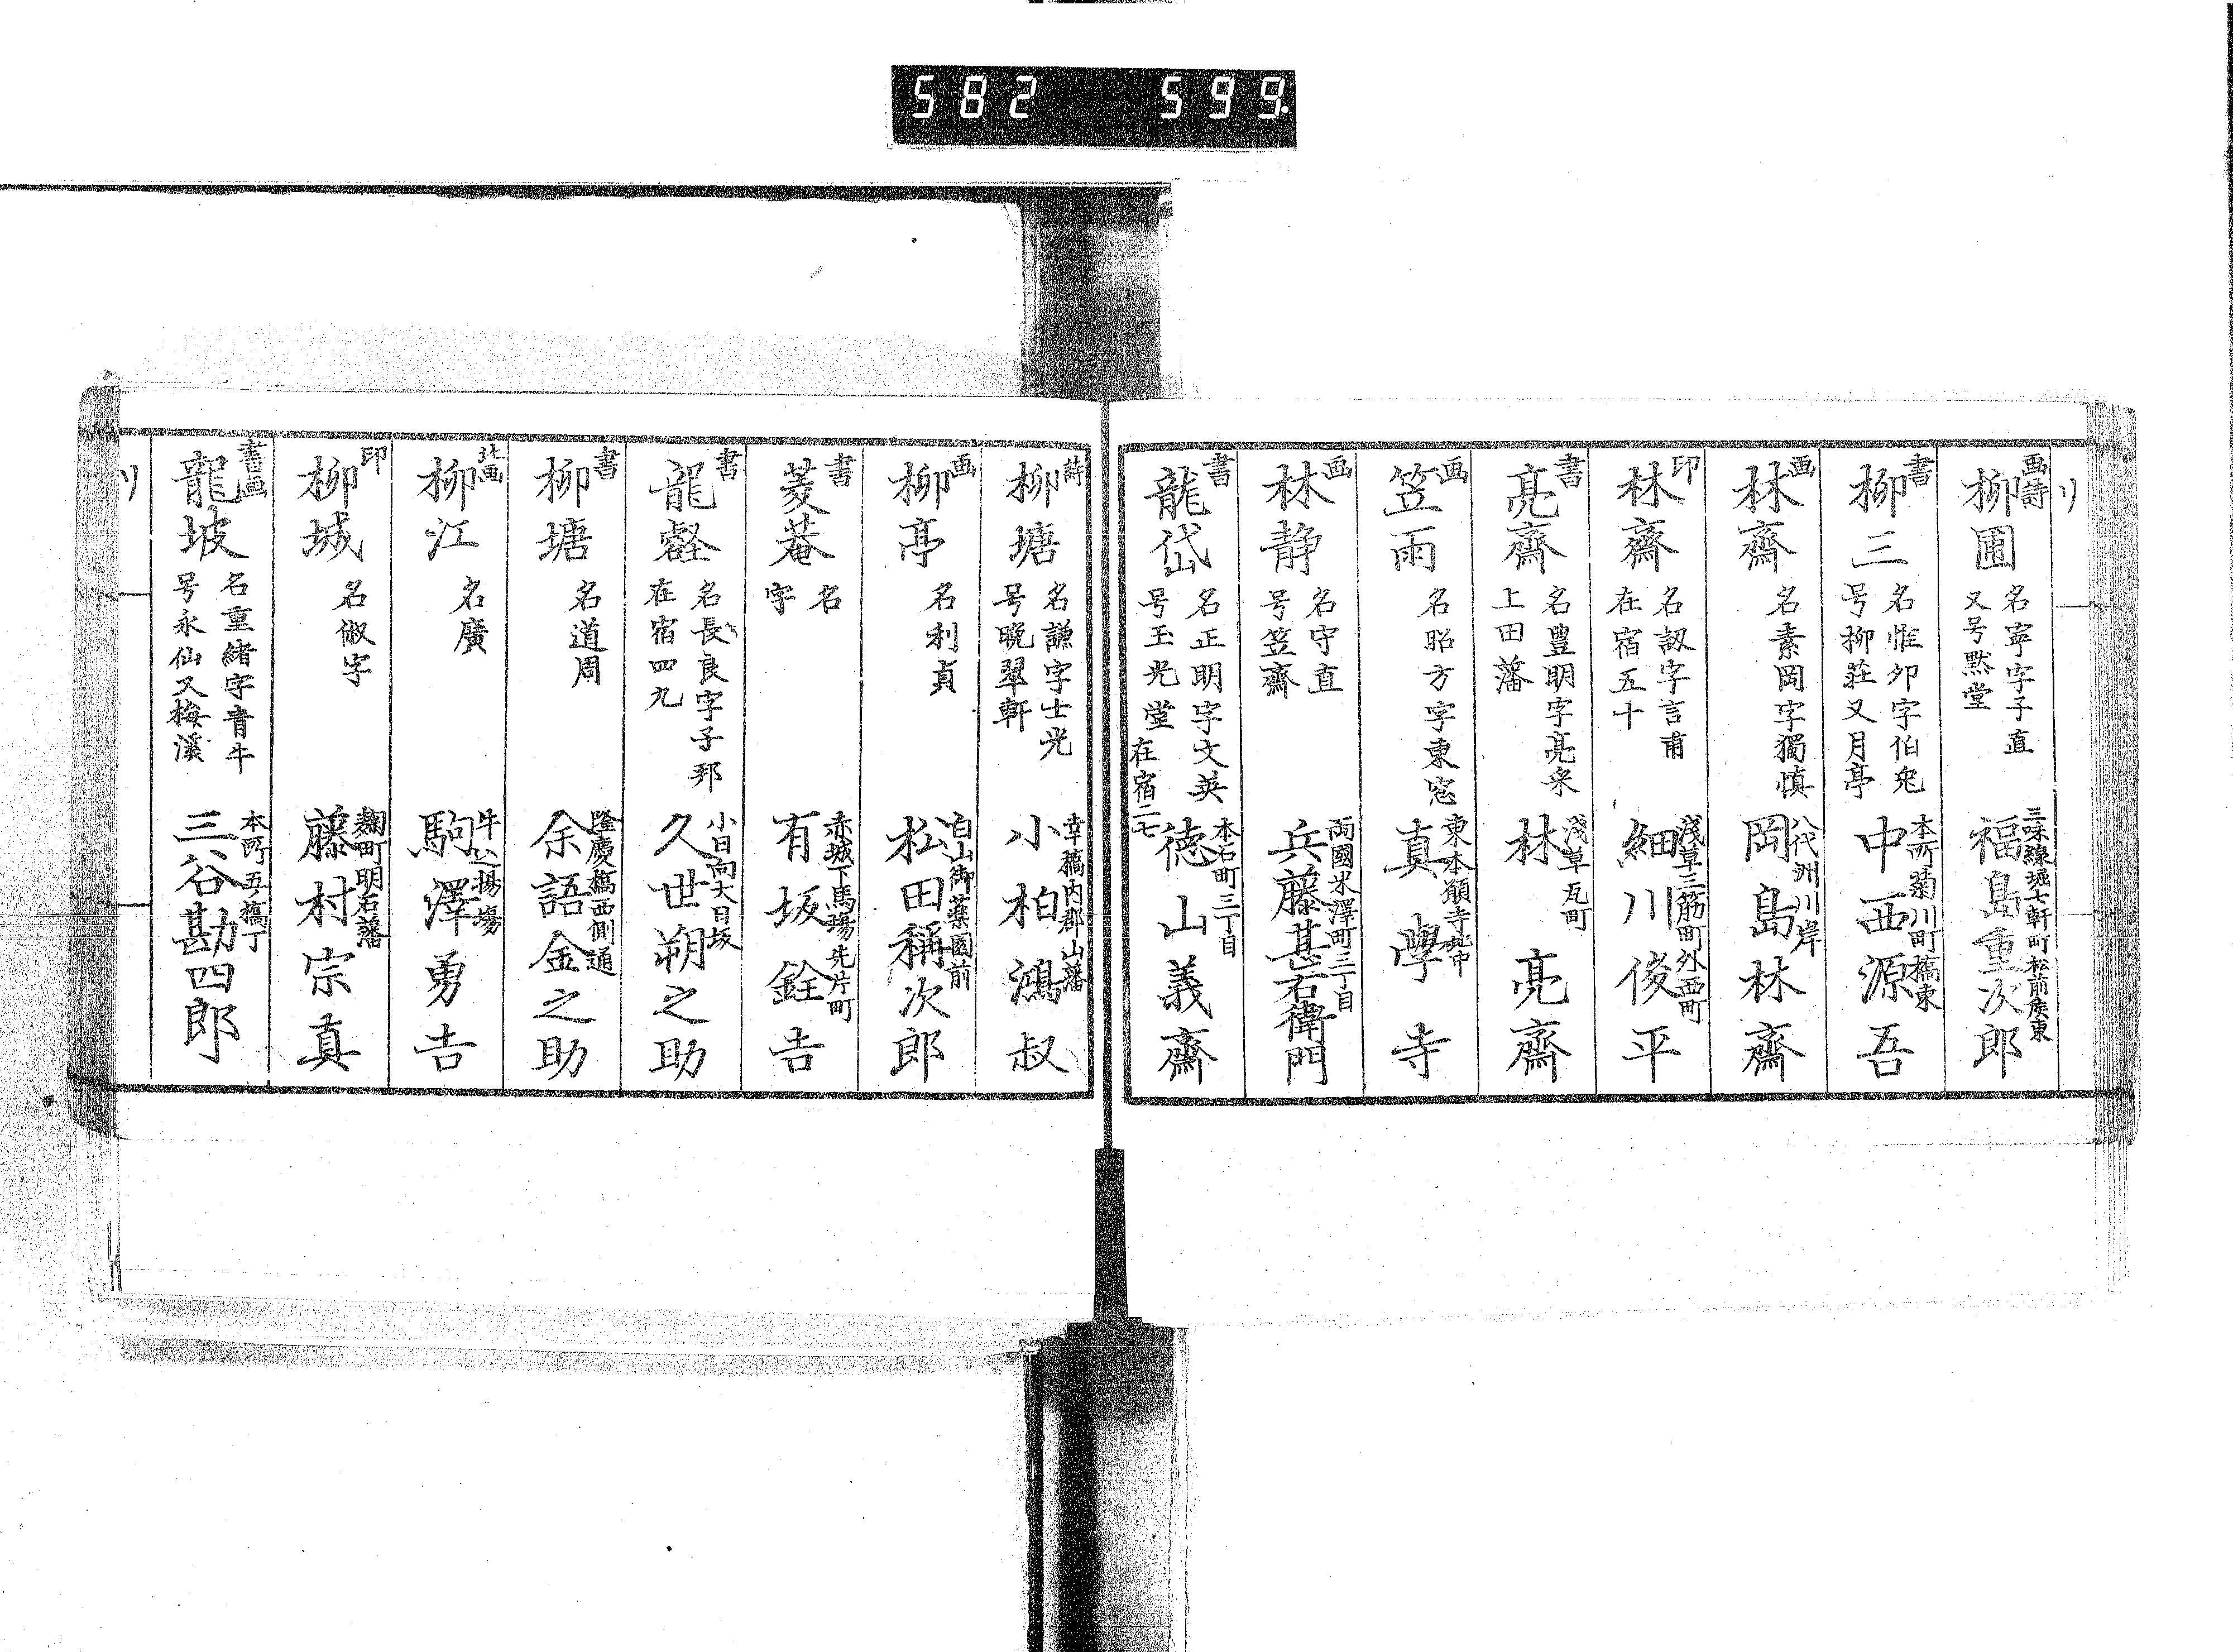 582 599.
リ
画詩
柳圃
名寧字子直
又号黙堂
三味線堀七軒町松前矦東
福島重次郎
書
柳三
名惟夘字伯兔
号柳荘又月亭
本所菊川町橋東
中西源吾
画
林齋
名素岡字獨慎
八代洲川岸
岡島林齋
印
林齋
名訒字言甫
在宿五十
淺草三筋町外西町
細川俊平
書
亮齋
名豊明字亮采
上田藩
淺草瓦町
林亮齋
画
笠雨
名昭方字東窓
東本願寺地中
真學寺
画
林静
名守直
号笠齋
両國米澤町三丁目
兵藤甚右衛門
書
龍岱
名正明字文英
号玉光堂 在宿二七
本石町三丁目
徳山義齋
詩
柳塘
名謙字士光
号晩翠軒
幸橋内郡山藩
小柏鴻叔
画
柳亭
名利貞
白山御薬園前
松田稱次郎
書
菱菴
名
字
赤城下馬場先片町
有坂銓吉
書
龍壑
名長良字子邦
在宿四九
小日向大日坂
久世朔之助
書
柳塘
名道周
隆慶橋西側通
余語金之助
北画
柳江
名廣
牛込揚場
駒澤勇吉
印
柳城
名俶字
麹町明石藩
藤村宗真
書画
龍坡
名重緒字青牛
号永仙又梅溪
本所五橋丁
三谷勘四郎
リ